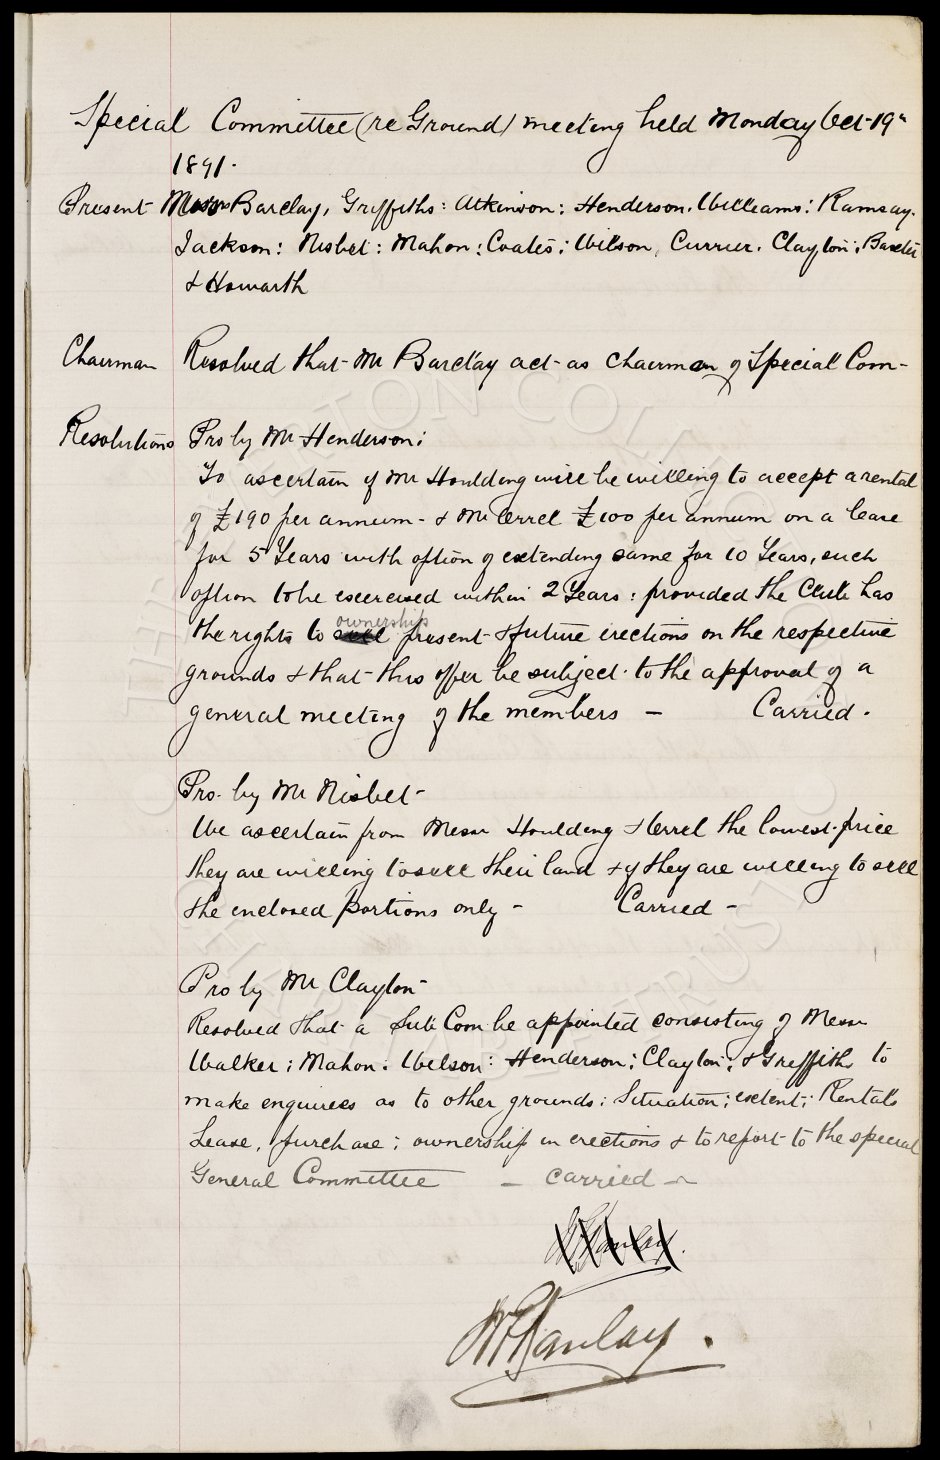 Special Committee (re Ground) meeting held Monday Oct 19th
1891.
Present Messrs Barclay, Griffiths: Atkinson: Henderson. Williams: Ramsay.
Jackson: Nisbet: Mahon: Coates: Wilson, Currier. Clayton: Baxter
& Howarth
Chairman Resolved that Mr Barclay act as Chairman of Special Com-
Resolutions Pro by Mr Henderson:
To ascertain if Mr Houlding will be willing to accept a rental
of £190 per annum - & Mr Orrel £100 per annum on a lease
for 5 Years with option of extending same for 10 Years, such
option to be exercised within 2 Years: provided the Club has
ownership
the rights to sell present & future erections on the respective
grounds & that this offer be subject to the approval of a
general meeting of the members — Carried.
Pro. by Mr Nisbet -
We ascertain from Messr Houlding & Orrel the lowest price
they are willing to sell their land & if they are willing to sell
the enclosed portions only - Carried -
Pro by Mr Clayton -
Resolved that a Sub Com be appointed consisting of Messr
Walker: Mahon: Wilson: Henderson: Clayton: & Griffiths to
make enquiries as to other grounds: Situation; extent; Rentals
Lease, purchase; ownership in erections & to report to the special
General Committee - carried -
THE EVERTON COLLECTION
CHARITABLE TRUST